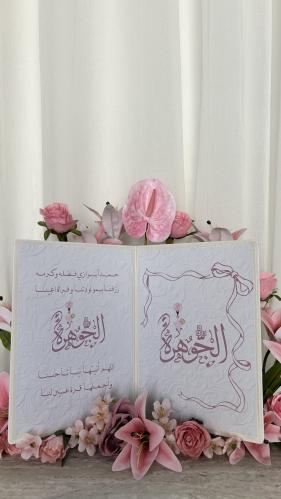 حمداً يوازي فضله وكرمه
رزقنا بمولودتنا وقرة أعيننا
الجوهرة
اللهم أنبتها نباتاً حسناً
واجعلها قرة عين لنا
الجوهرة